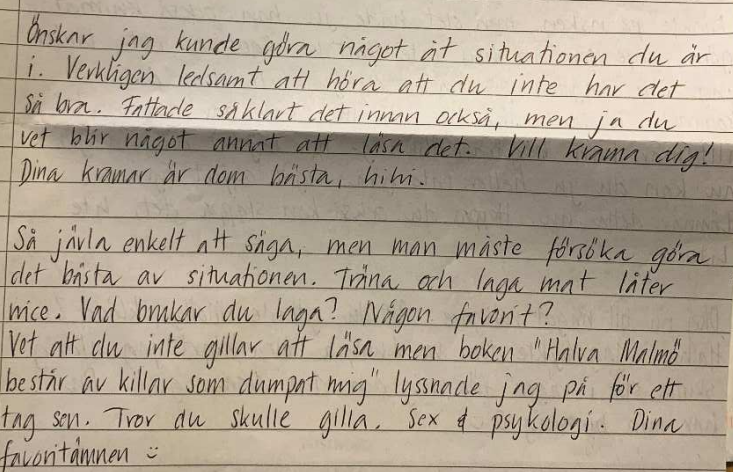 Önskar jag kunde göra något åt situationen du är
i. Verkligen ledsamt att höra att du inte har det
så bra. Fattade såklart det innan också, men ja du
vet blir något annat att läsa det. Vill krama dig!
Dina kramar är dom bästa, hihi.
Så jävla enkelt att säga, men man måste försöka göra
det bästa av situationen. Träna och laga mat låter
nice. Vad brukar du laga? Någon favorit?
Vet att du inte gillar att läsa men boken "Halva Malmö
består av killar som dumpat mig" lyssnade jag på för ett
tag sen. Tror du skulle gilla. Sex & psykologi. Dina
favoritämnen :)